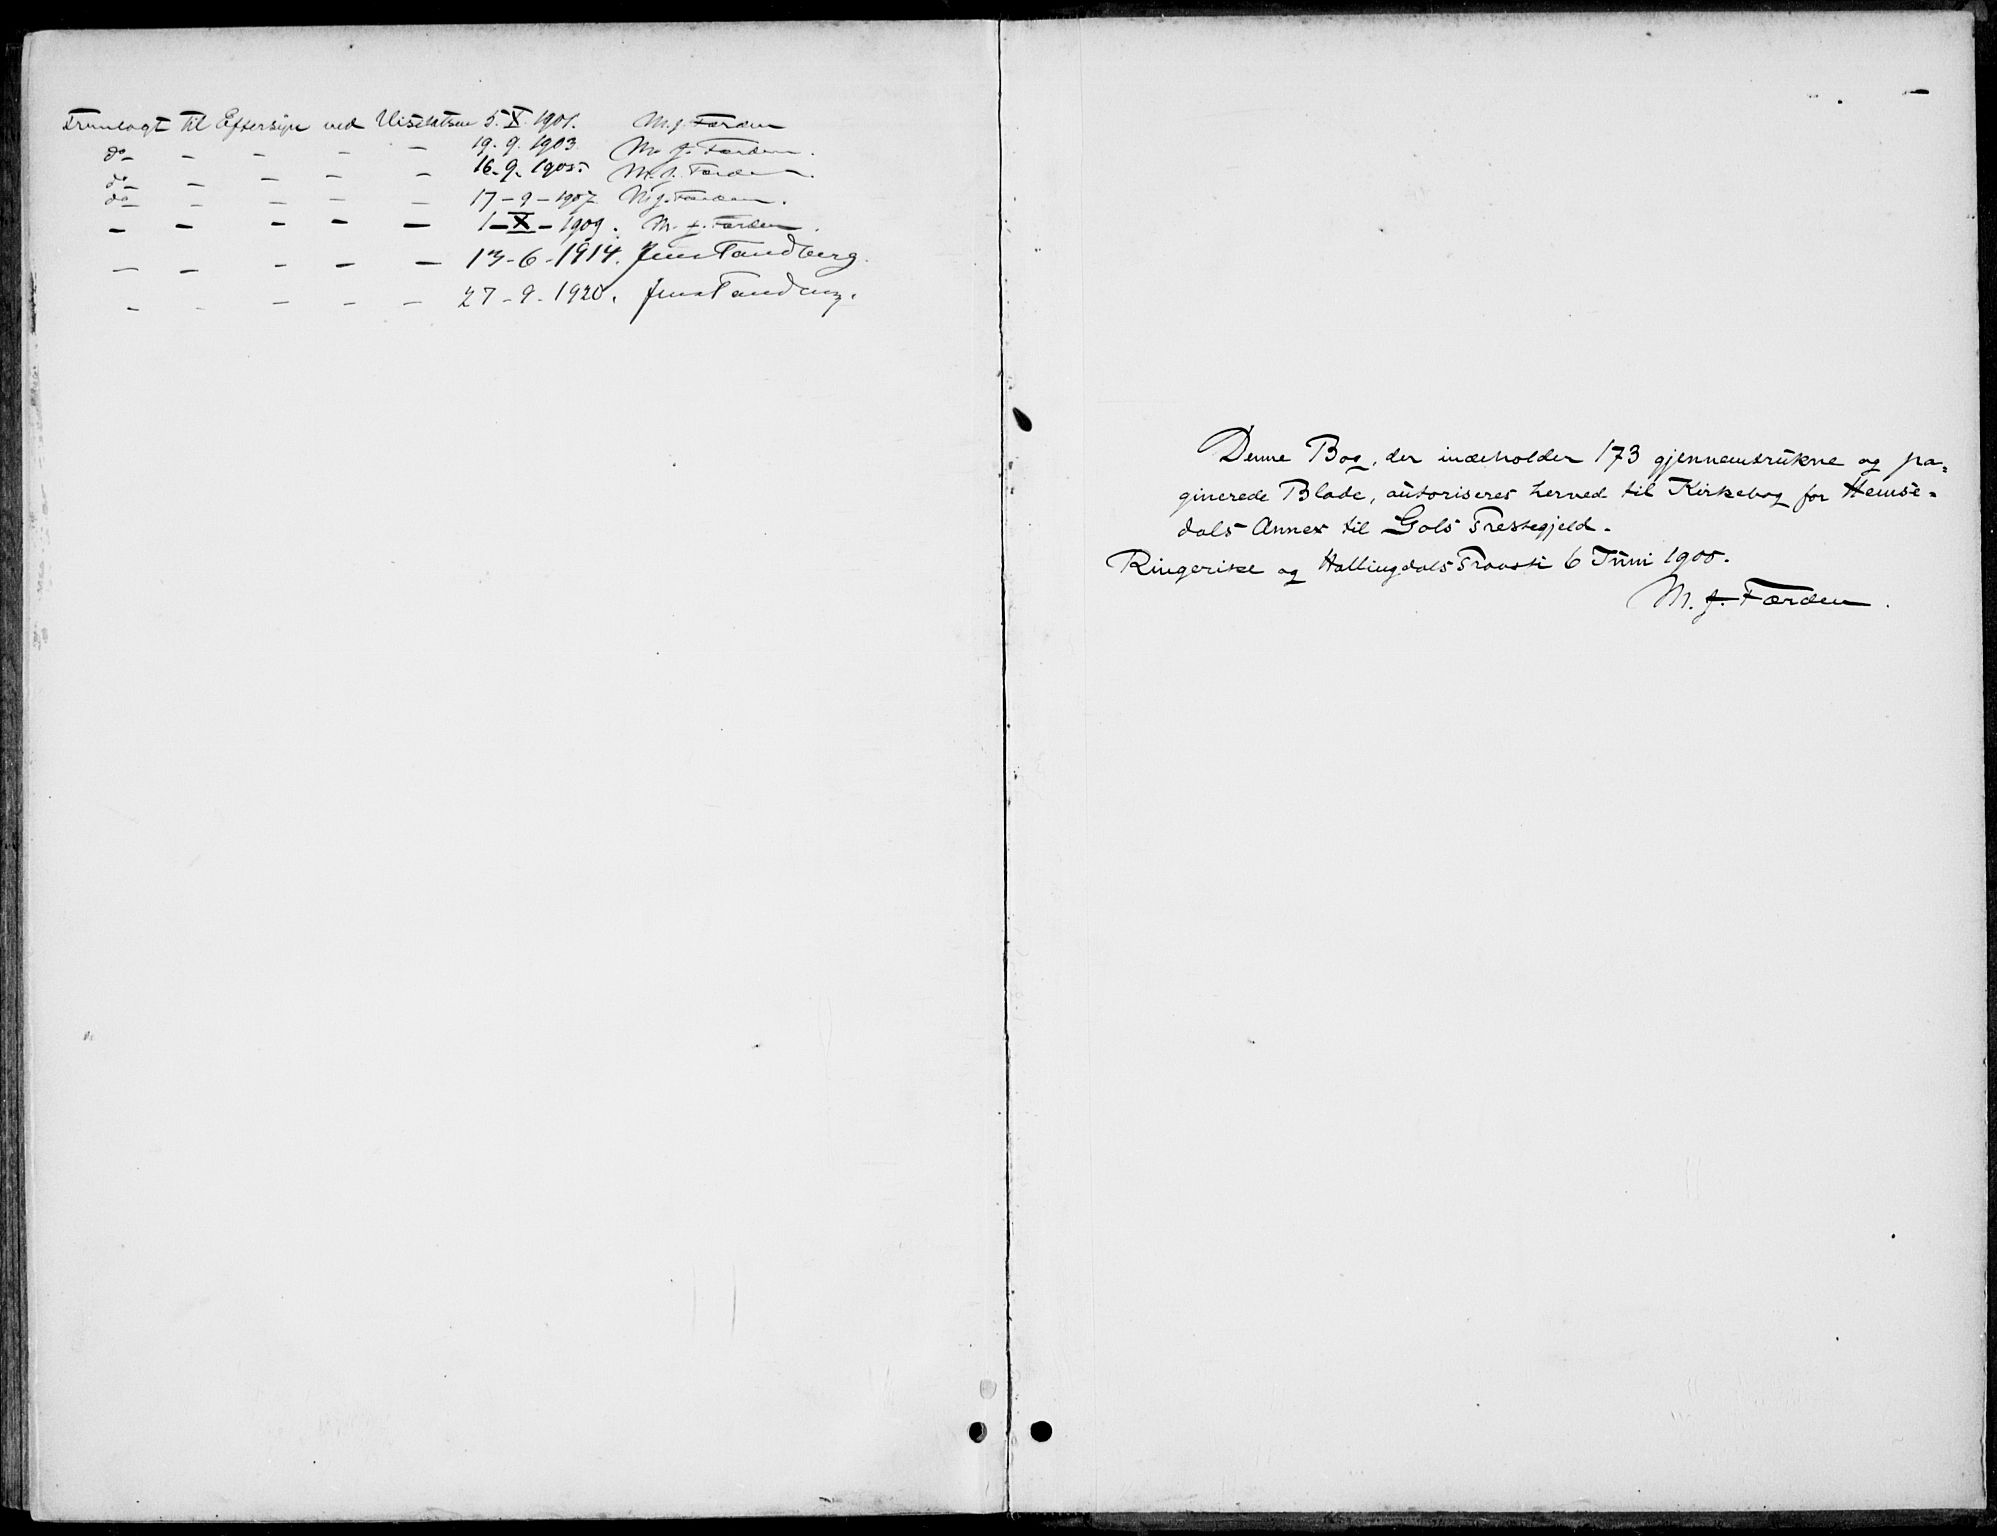 Fremlagt til Eftersyn ved Visitatsen 5. X. 1901. M. J. Færden
do – – – – 19. 9. 1903. M. J. Færden.
do – – – – 16. 9. 1905. M. J. Færden.
do – – – – 17 – 9 – 1907. M. J. Færden.
– – – – – 1 – X – 1909. M. J. Færden.
– – – – – 13 - 6 - 1914. Jens Tandberg.
– – – – – 27 - 9 - 1920. Jens Tandberg.
Denne Bog, der indeholder 173 gjennemtrukne og pa=
ginerede Blade, autoriseres herved til Kirkebog for Hemse-
dals Annex til Gols Præstegjeld.
Ringerike og Hallingdals Provsti 6 Juni 1900.
M. J. Færden.